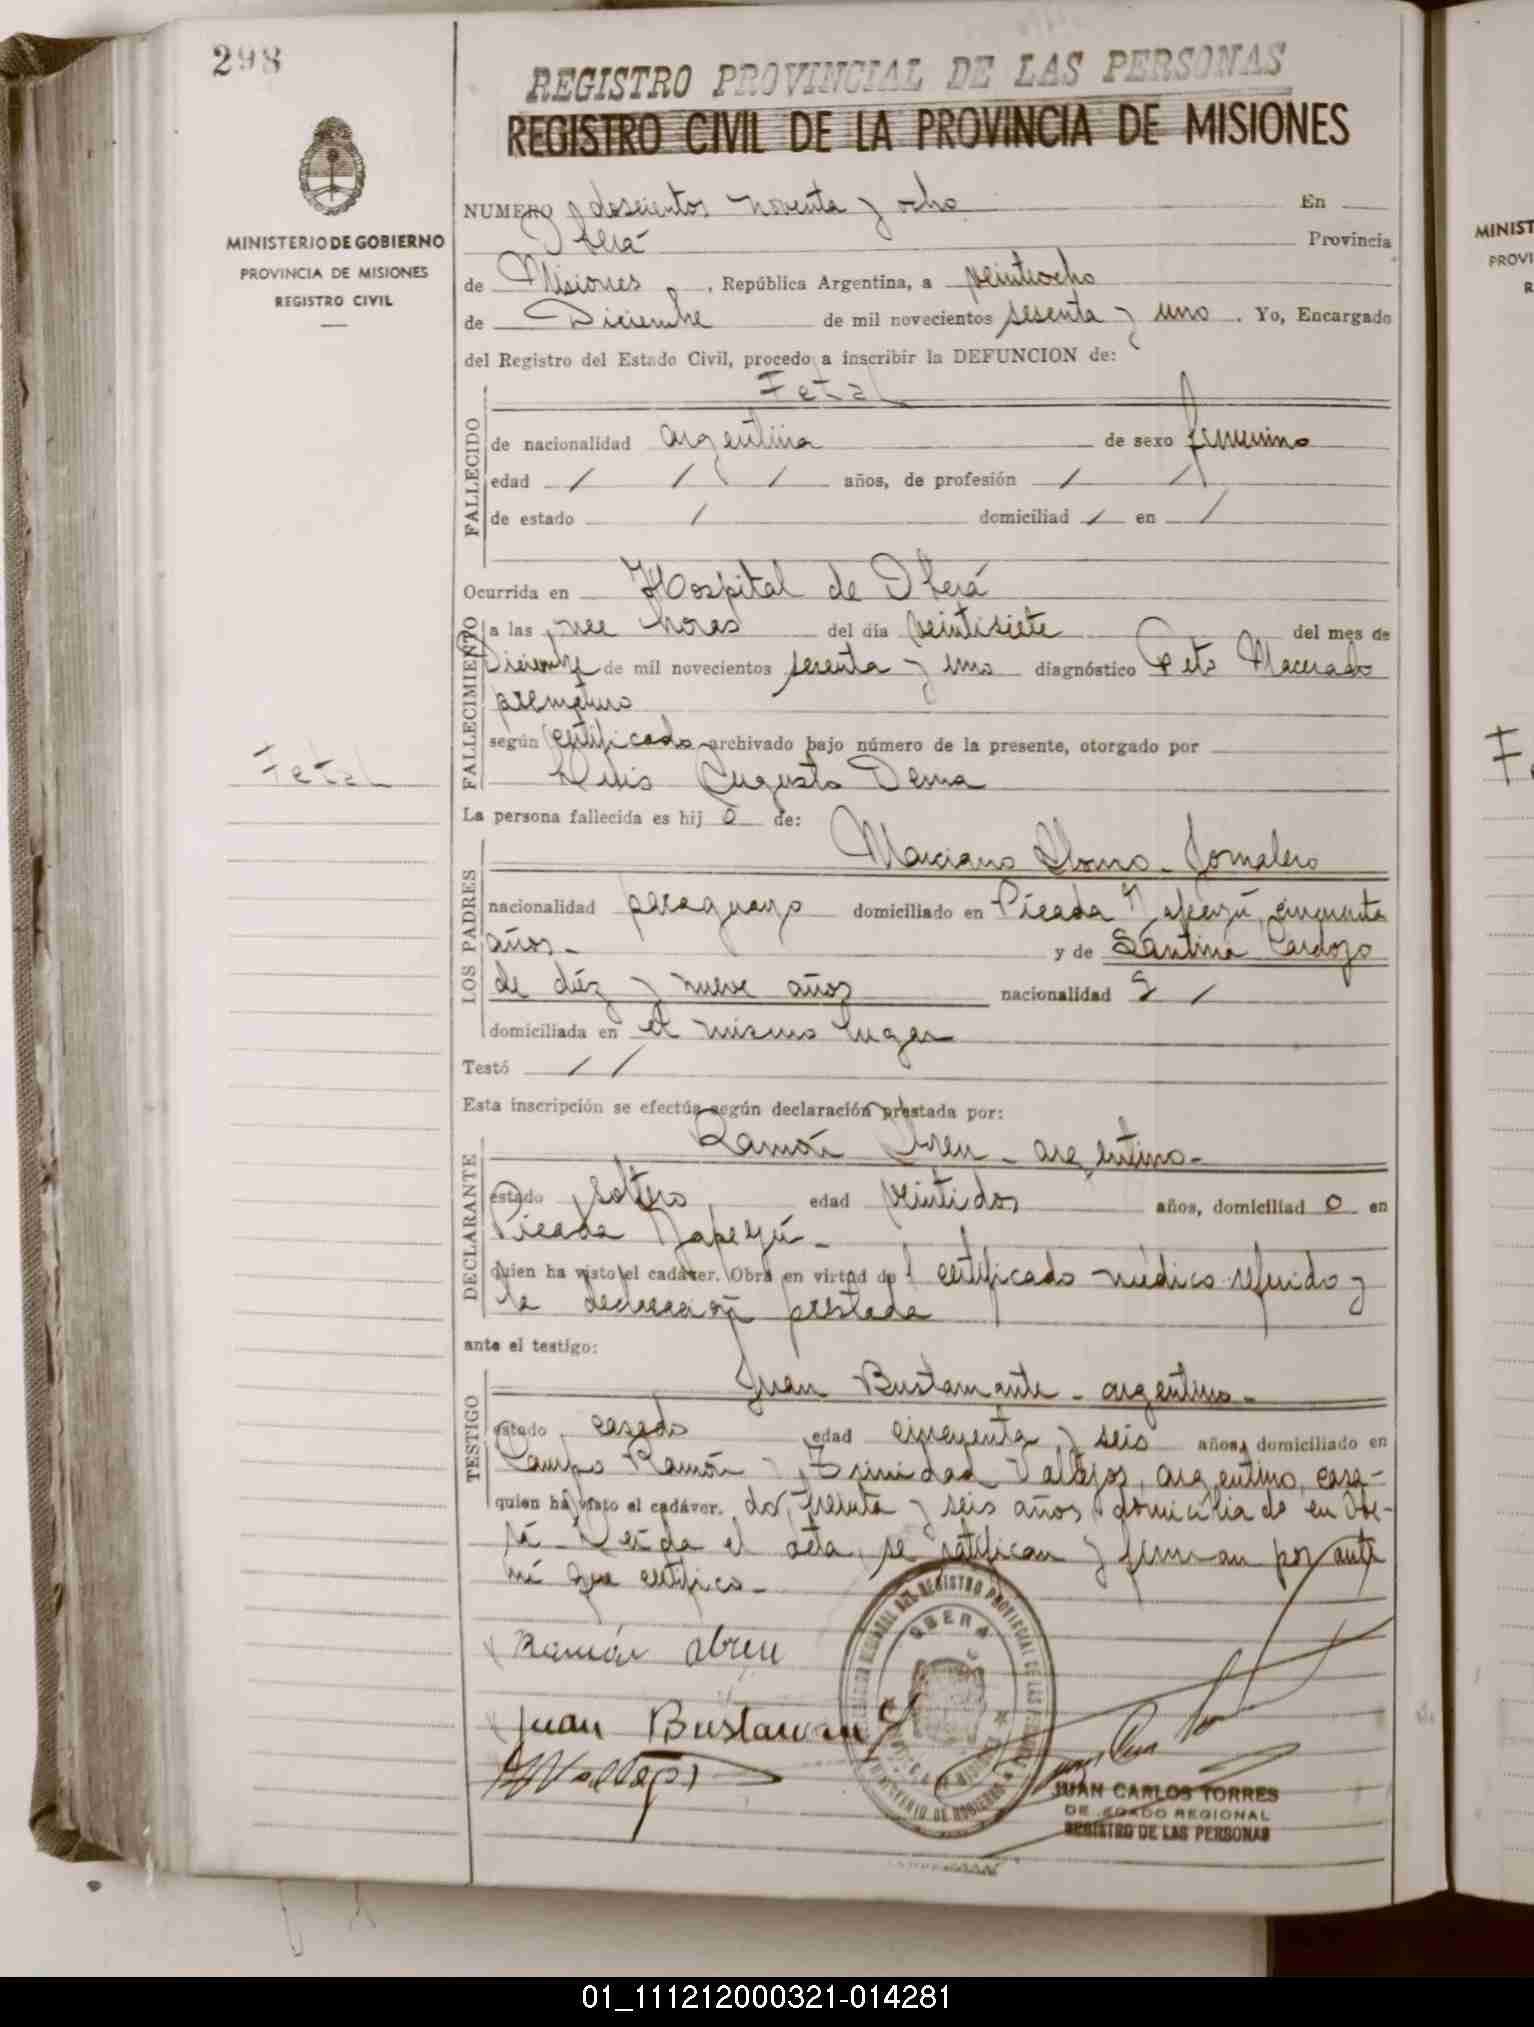 298
REGISTRO PROVINCIAL DE LAS PERSONAS
REGISTRO CIVIL DE LA PROVINCIA DE MISIONES
MINISTERIO DE GOBIERNO
PROVINCIA DE MISIONES
REGISTRO CIVIL
NUMERO doscientos noventa y ocho En
Oberá Provincia
de Misiones, República Argentina, a veintiocho
de Diciembre de mil novecientos sesenta y uno. Yo, Encargado
del Registro del Estado Civil, procedo a inscribir la DEFUNCION de:
Fetal
FALLECIDO
de nacionalidad argentina de sexo femenino
edad / / / años, de profesión / /
de estado / domiciliad / en /
Ocurrida en Hospital de Oberá
FALLECIMIENTO
a las once horas del día veintisiete del mes de
Diciembre de mil novecientos sesenta y uno diagnóstico Feto Macerado
prematuro
según certificado archivado bajo número de la presente, otorgado por
Fetal
Luis Augusto Derna
La persona fallecida es hij o de:
LOS PADRES
Marciano Jornalero
nacionalidad paraguayo domiciliado en Picada Yapeyú, cincuenta
años- y de Santina Cardozo
de diéz y nueve años nacionalidad /
domiciliada en el mismo lugar
Testó / /
Esta inscripción se efectúa según declaración prestada por:
DECLARANTE
Ramón Abreu - argentino-
estado soltero edad veintidos años, domiciliad o en
Picada Yapeyú-
quien ha visto el cadáver. Obra en virtud de l certificado médico referido y
la declaración prestada
ante el testigo:
TESTIGO
Juan Bustamante - argentino-
estado casado edad cincuenta y seis años, domiciliado en
Campo Ramón y Trinidad Vallejos, argentino, casa-
quien ha visto el cadáver. do, treinta y seis años domiciliado en Obe-
rá- Leída el acta, se ratifican y firman por ante
mí que certifico-
Ramón Abreu
Juan Bustaman
JUAN CARLOS TORRES
REGIONAL
REGISTRO DE LAS PERSONAS
OBERA
01_111212000321-014281